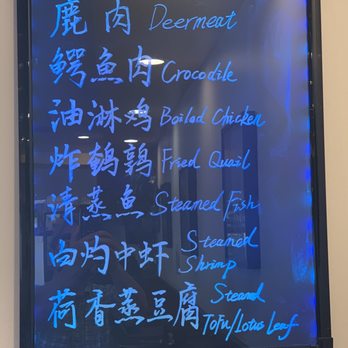 鹿肉 Deermeat
鳄魚肉 Crocodile
油淋鸡 Boiled Chicken
炸鹌鹑 Fried Quail
清蒸魚 Steamed Fish
白灼中虾 Steamed Shrimp
荷香蒸豆腐 Steamd Tofu/Lotus Leaf